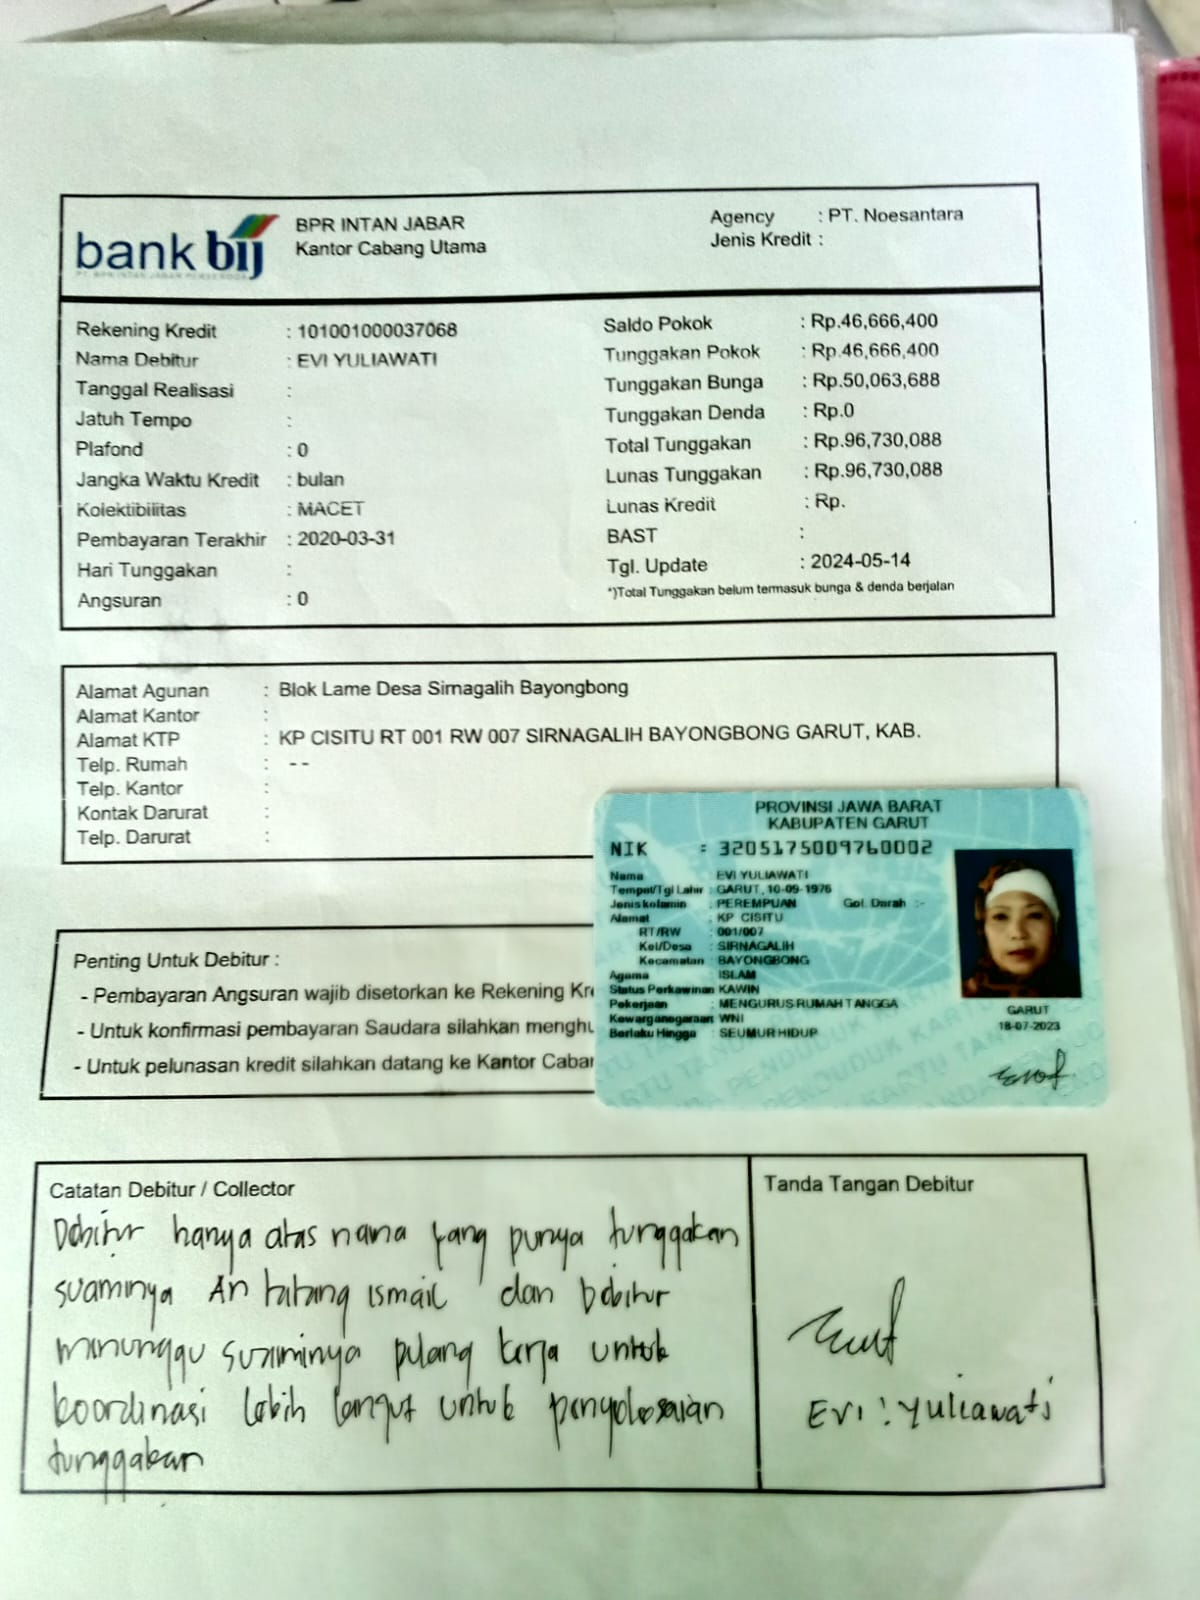 bank bij
BPR INTAN JABAR
Kantor Cabang Utama
Agency : PT. Noesantara
Jenis Kredit :
Rekening Kredit : 101001000037068
Nama Debitur : EVI YULIAWATI
Tanggal Realisasi :
Jatuh Tempo :
Plafond : 0
Jangka Waktu Kredit : bulan
Kolektibilitas : MACET
Pembayaran Terakhir : 2020-03-31
Hari Tunggakan :
Angsuran : 0
Saldo Pokok : Rp.46,666,400
Tunggakan Pokok : Rp.46,666,400
Tunggakan Bunga : Rp.50,063,688
Tunggakan Denda : Rp.0
Total Tunggakan : Rp.96,730,088
Lunas Tunggakan : Rp.96,730,088
Lunas Kredit : Rp.
BAST :
Tgl. Update : 2024-05-14
*)Total Tunggakan belum termasuk bunga & denda berjalan
Alamat Agunan : Blok Lame Desa Sirnagalih Bayongbong
Alamat Kantor :
Alamat KTP : KP CISITU RT 001 RW 007 SIRNAGALIH BAYONGBONG GARUT, KAB.
Telp. Rumah : --
Telp. Kantor :
Kontak Darurat :
Telp. Darurat :
PROVINSI JAWA BARAT
KABUPATEN GARUT
NIK : 3205175009760002
Nama : EVI YULIAWATI
Tempat/Tgl Lahir : GARUT, 10-09-1976
Jenis kelamin : PEREMPUAN Gol. Darah :-
Alamat : KP CISITU
RT/RW : 001/007
Kel/Desa : SIRNAGALIH
Kecamatan : BAYONGBONG
Agama : ISLAM
Status Perkawinan: KAWIN
Pekerjaan : MENGURUS RUMAH TANGGA
Kewarganegaraan: WNI
Berlaku Hingga : SEUMUR HIDUP
GARUT
18-07-2023
Penting Untuk Debitur :
- Pembayaran Angsuran wajib disetorkan ke Rekening Kre
- Untuk konfirmasi pembayaran Saudara silahkan menghu
- Untuk pelunasan kredit silahkan datang ke Kantor Cabar
Catatan Debitur / Collector
Debitur hanya atas nama yang punya tunggakan
suaminya An tatang ismail dan Debitur
menunggu suaminya pulang kerja untuk
koordinasi lebih lanjut untuk penyelesaian
tunggakan
Tanda Tangan Debitur
Evi : Yuliawati